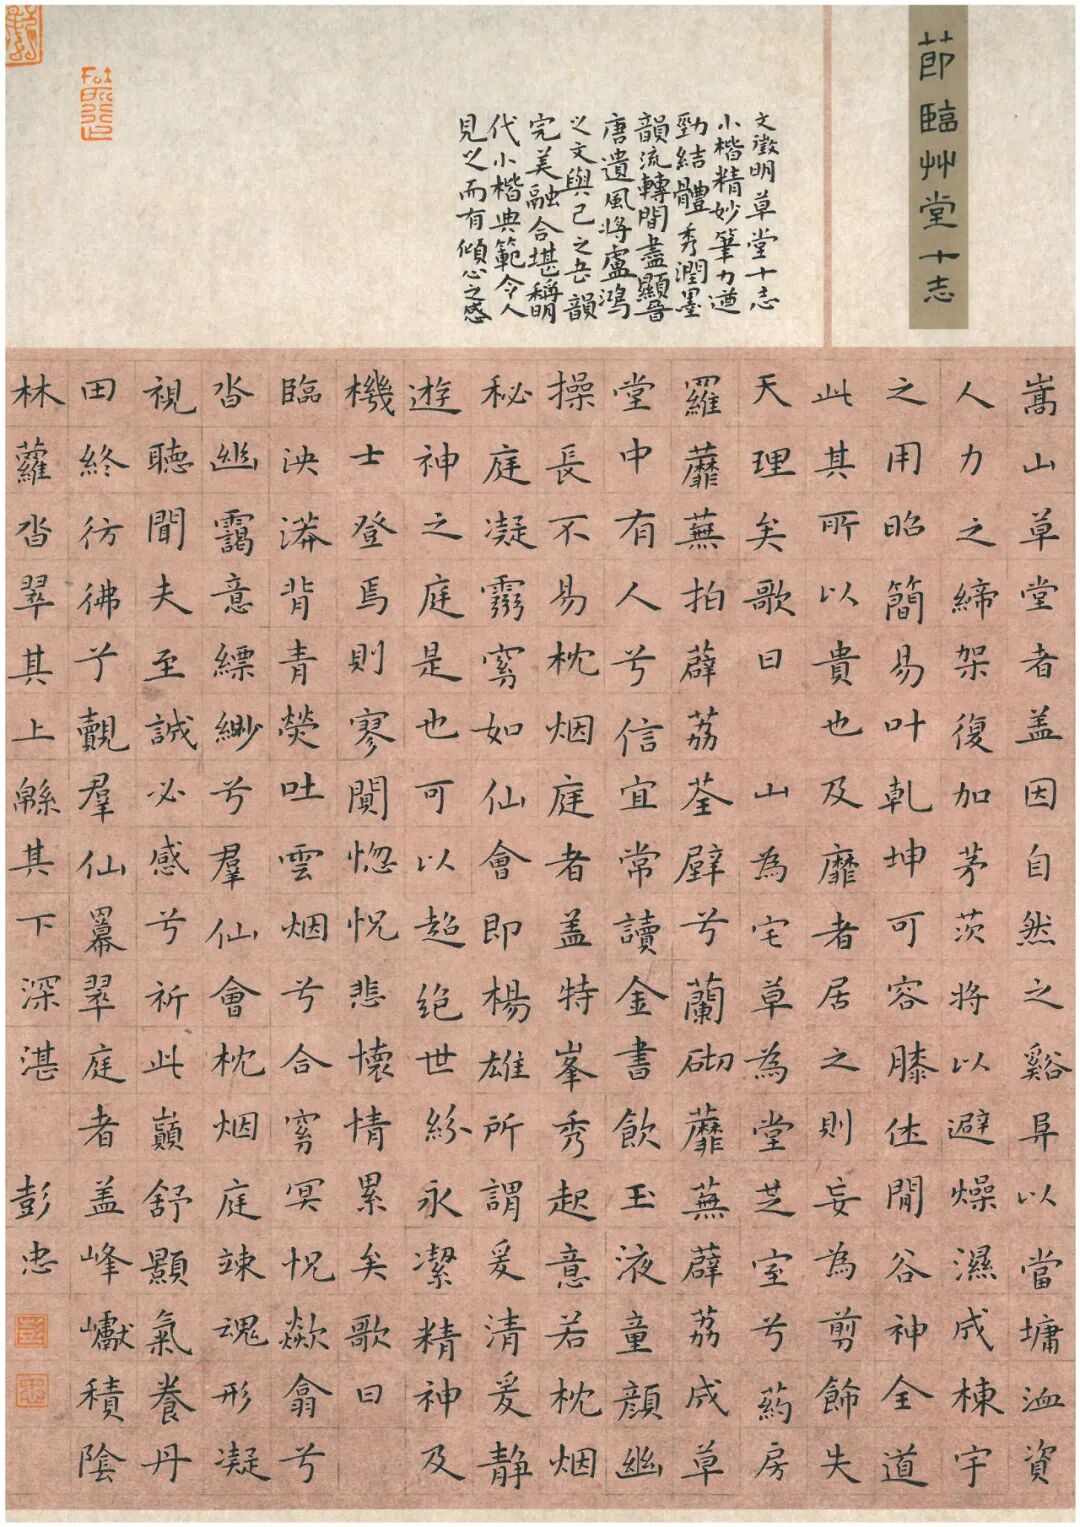 節臨艸堂十志
文徵明草堂十志
小楷精妙筆力遒
勁結體秀潤墨
韻流轉間盡顯晉
唐遺風將盧鴻
之文與己之書韻
完美融合堪稱明
代小楷典範令人
見之而有傾心之感
嵩山草堂者盖因自然之谿阜以當墉洫資
人力之締架復加茅茨將以避燥濕成棟宇
之用昭簡易叶乹坤可容膝休閒谷神全道
此其所以貴也及靡者居之則妄為剪飾失
天理矣歌曰 山為宅草為堂芝室兮葯房
羅蘼蕪拍薜荔荃壁兮蘭砌蘼蕪薜荔成草
堂中有人兮信宜常讀金書飲玉液童顏幽
操長不易枕烟庭者盖特峯秀起意若枕烟
秘庭凝霛窅如仙會即楊雄所謂爰清爰静
遊神之庭是也可以超绝世紛永潔精神及
機士登焉則寥闃惚怳悲懷情累矣歌曰
臨泱漭背青熒吐雲烟兮合窅冥怳歘翕兮
沓幽靄意縹緲兮羣仙會枕烟庭竦魂形凝
視聽聞夫至誠必感兮祈此巔舒顥氣養丹
田終彷彿兮覿羣仙羃翠庭者盖峰巘積陰
林蘿沓翠其上緜其下深湛 彭忠